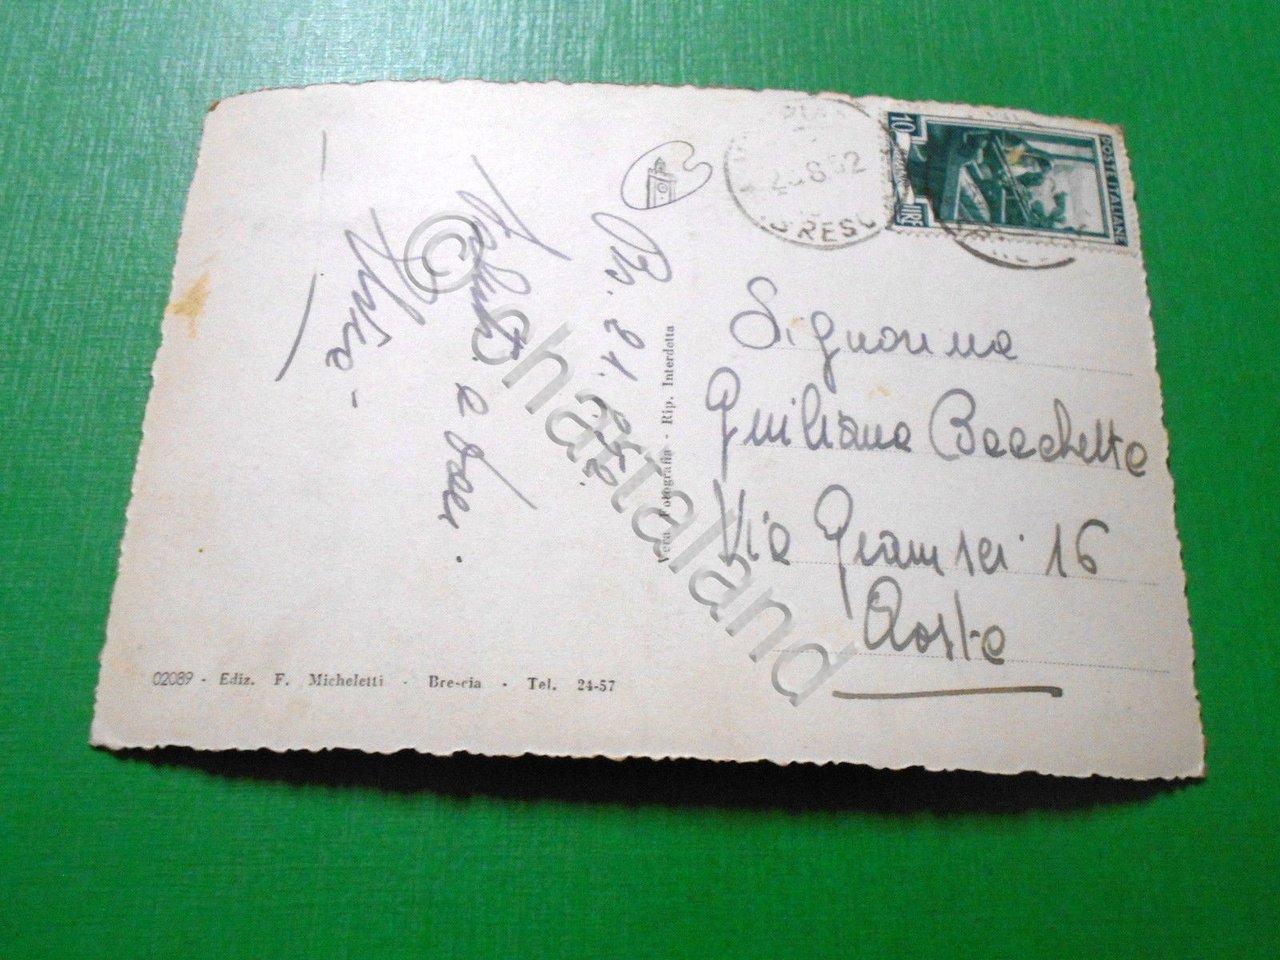 Br. 21.8.52
Saluti e baci
02089 - Ediz. F. Micheletti - Brescia - Tel. 24-57
Vera Fotografia - Rip. Interdetta
10
LIRE
POSTE ITALIANE
2 8 52
BRESC
Signorina
Giuliana Bacchetta
Via Gramsci 16
Aosta
© chartaland